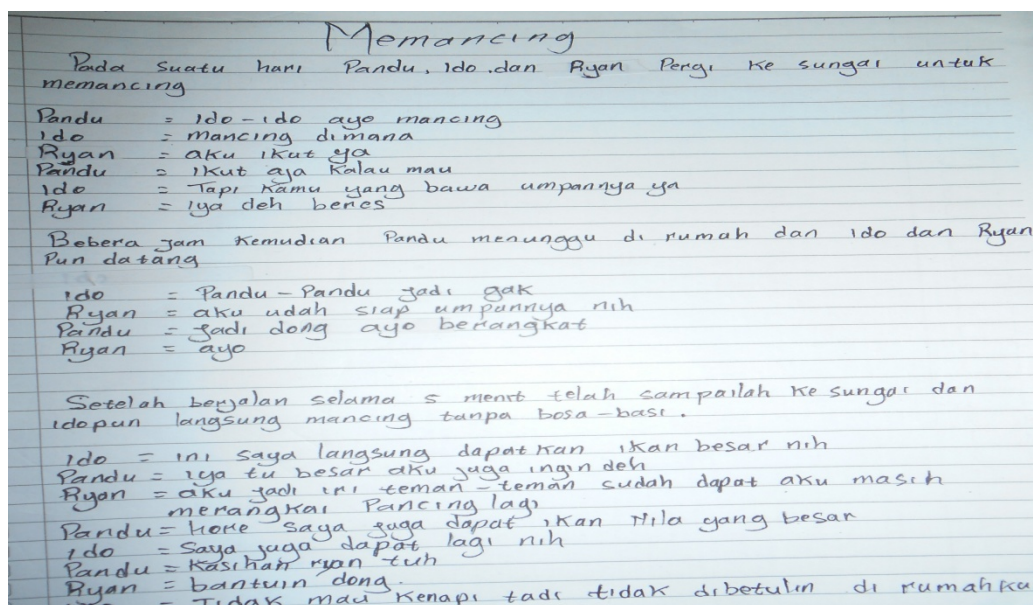 Memancing
Pada suatu hari Pandu, Ido.dan Ryan Pergi ke sungai untuk
memancing
Pandu = Ido-ido ayo mancing
Ido = mancing dimana
Ryan = aku ikut ya
Pandu = ikut aja kalau mau
Ido = Tapi kamu yang bawa umpannya ya
Ryan = iya deh beres
Bebera jam kemudian Pandu menunggu di rumah dan Ido dan Ryan
Pun datang
Ido = Pandu-Pandu jadi gak
Ryan = aku udah siap umpannya nih
Pandu = jadi dong ayo berangkat
Ryan = ayo
Setelah berjalan selama 5 menit telah sampailah ke sungai dan
idopun langsung mancing tanpa bosa-basi.
Ido = ini saya langsung dapatkan ikan besar nih
Pandu = iya tu besar aku juga ingin deh
Ryan = aku jadi iri teman-teman sudah dapat aku masih
merangkai Pancing lagi
Pandu = hore saya juga dapat ikan Nila yang besar
Ido = Saya juga dapat lagi nih
Pandu = Kasihan ryan tuh
Ryan = bantuin dong.
= Tidak mau kenapi tadi tidak dibetulin di rumahku